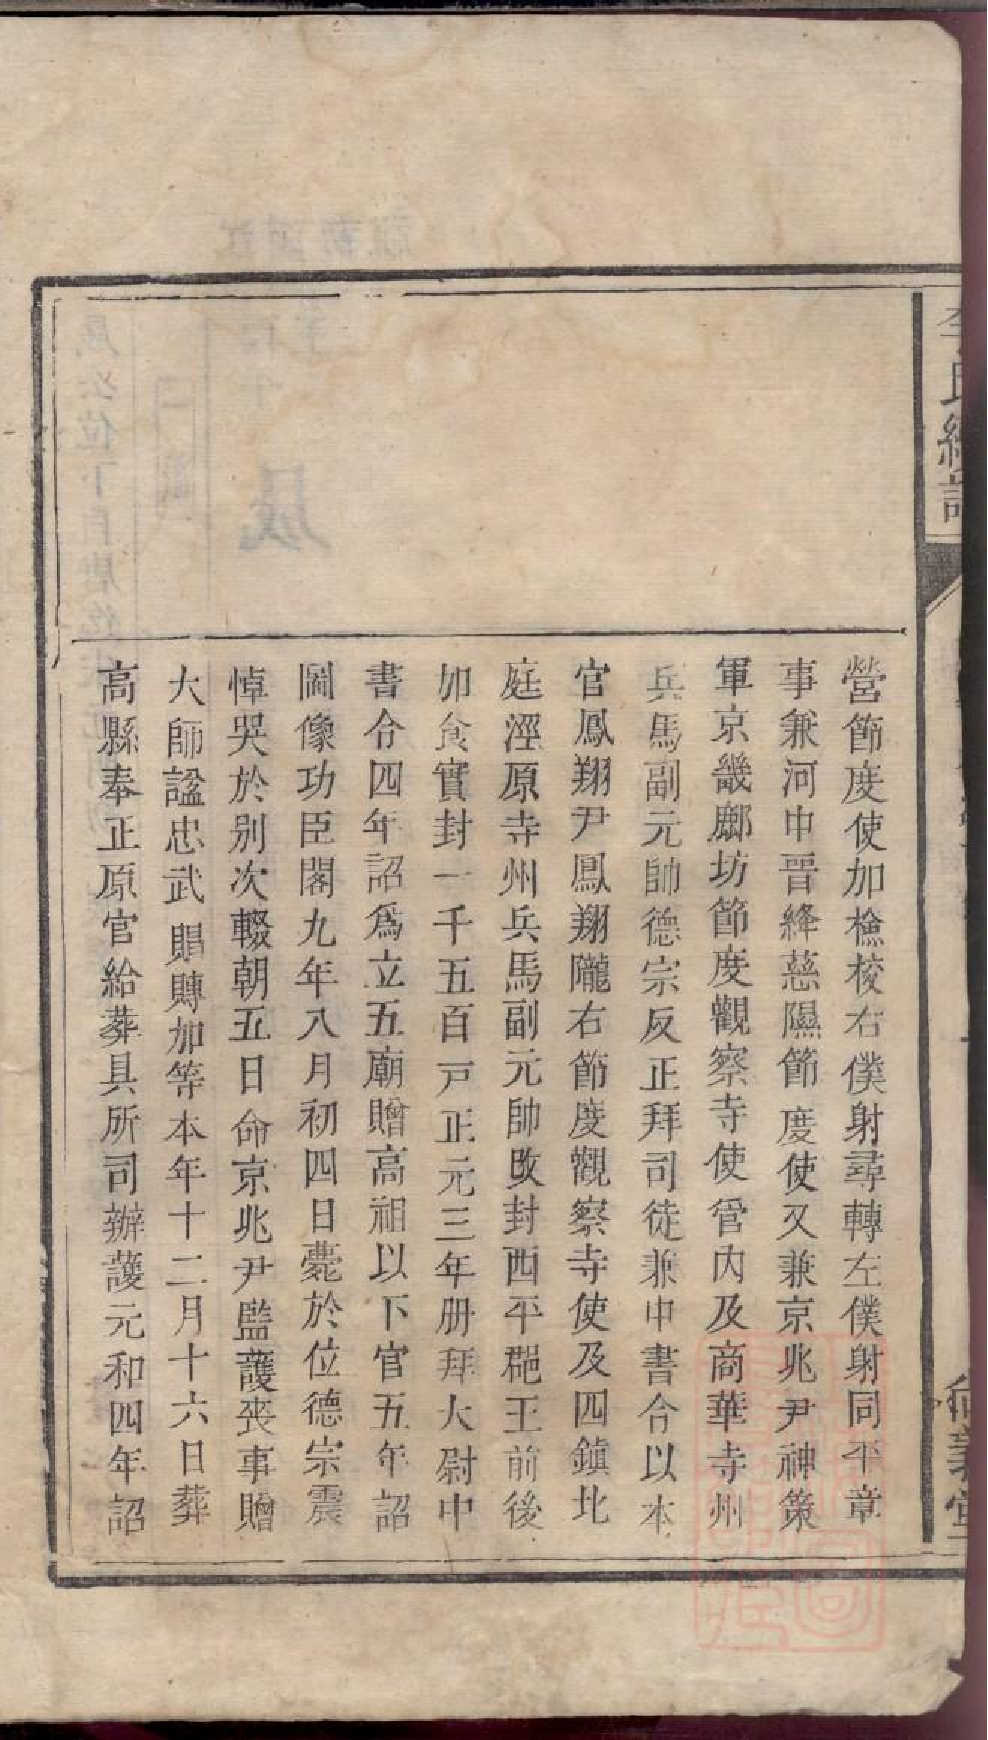 營節度使加檢校右僕射尋轉左僕射同平章
事兼河中晉絳慈隰節度使又兼京兆尹神策
軍京畿鄜坊節度觀察寺使管內及商華寺州
兵馬副元帥德宗反正拜司徒兼中書令以本
官鳳翔尹鳳翔隴右節度觀察寺使及四鎮北
庭涇原寺州兵馬副元帥改封西平郡王前後
加食實封一千五百戸正元三年册拜大尉中
書令四年詔爲立五廟贈高祖以下官五年詔
圖像功臣閣九年八月初四日薨於位德宗震
悼哭於别次輟朝五日命京兆尹監護喪事贈
大師諡忠武賵賻加等本年十二月十六日葬
高縣奉正原官給葬具所司辦護元和四年詔
李氏
義堂